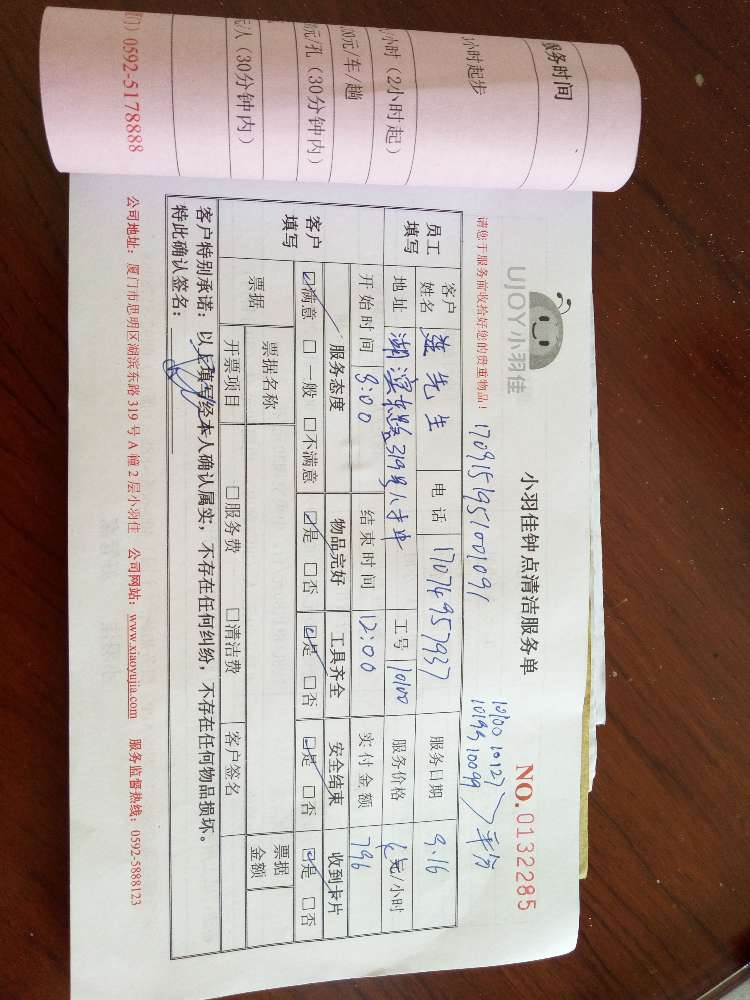 服务时间
小时起步
/小时（2小时起）
00元/车/趟
元/孔（30分钟内）
元/人（30分钟内）
门）0592-5178888
UJOY小羽佳
小羽佳钟点清洁服务单
NO.0132285
请您于服务前收拾好您的贵重物品！
1709151951001091
10100 10127
10195 10099
平分
员工填写
客户姓名
先生
电话
17074957937
服务日期
9.16
地址
湖滨东路319号A
工号
10100
服务价格
元/小时
开始时间
8:00
结束时间
12:00
实付金额
796
客户填写
服务态度
物品完好
工具齐全
安全结束
收到卡片
☑满意 □一般 □不满意
☑是 □否
☑是 □否
☑是 □否
☑是 □否
票据
票据名称
票据金额
开票项目
□服务费 □清洁费
客户签名
客户特别承诺：以上填写经本人确认属实，不存在任何纠纷，不存在任何物品损坏。
特此确认签名：
公司地址：厦门市思明区湖滨东路319号A幢2层小羽佳 公司网站：www.xiaoyujia.com 服务监督热线：0592-5888123